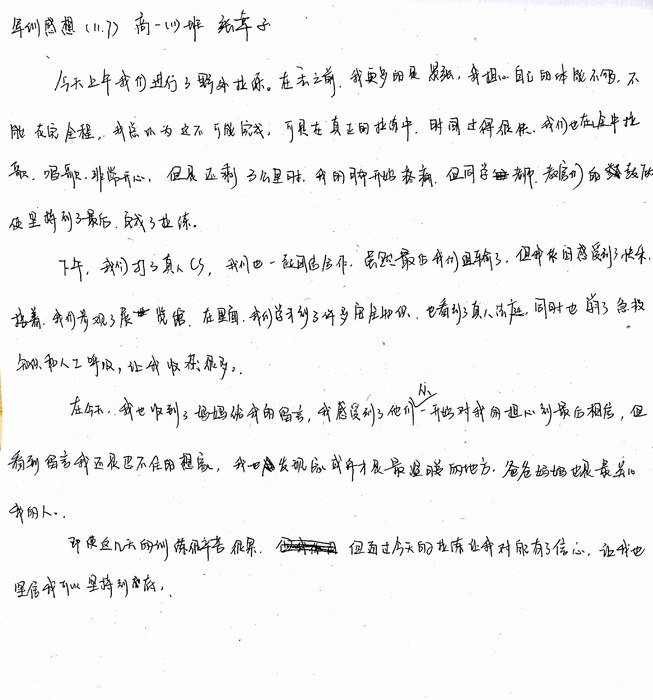 军训感想 (11.7) 高一(11)班 张韦子
今天上午我们进行了野外拉练。在去之前，我更多的是紧张，我担心自己的体能不够，不
能走完全程，我总认为这不可能完成，可是在真正的拉练中，时间过得很快，我们也在途中拉
歌、唱歌，非常开心，但是还剩3公里时，我的脚开始疼痛，但同学 老师、教官们的鼓励
使坚持到了最后，完成了拉练。
下午，我们打了真人CS，我们也一起团结合作，虽然最后我们组输了，但我依旧感受到了快乐，
接着，我们参观了展览馆，在里面，我们学习到了许多安全知识，也看到了真人法庭，同时也学了急救
知识和人工呼吸，让我收获很多。
在今天，我也收到了妈妈给我的留言，我感受到了他们从一开始对我的担心到最后相信，但
看到留言我还是忍不住的想家，我也发现家或许才是最温暖的地方，爸爸妈妈也是最关心
我的人。
即使这几天的训练很辛苦很累，但通过今天的拉练让我对 有了信心，让我也
坚信我可以坚持到底。